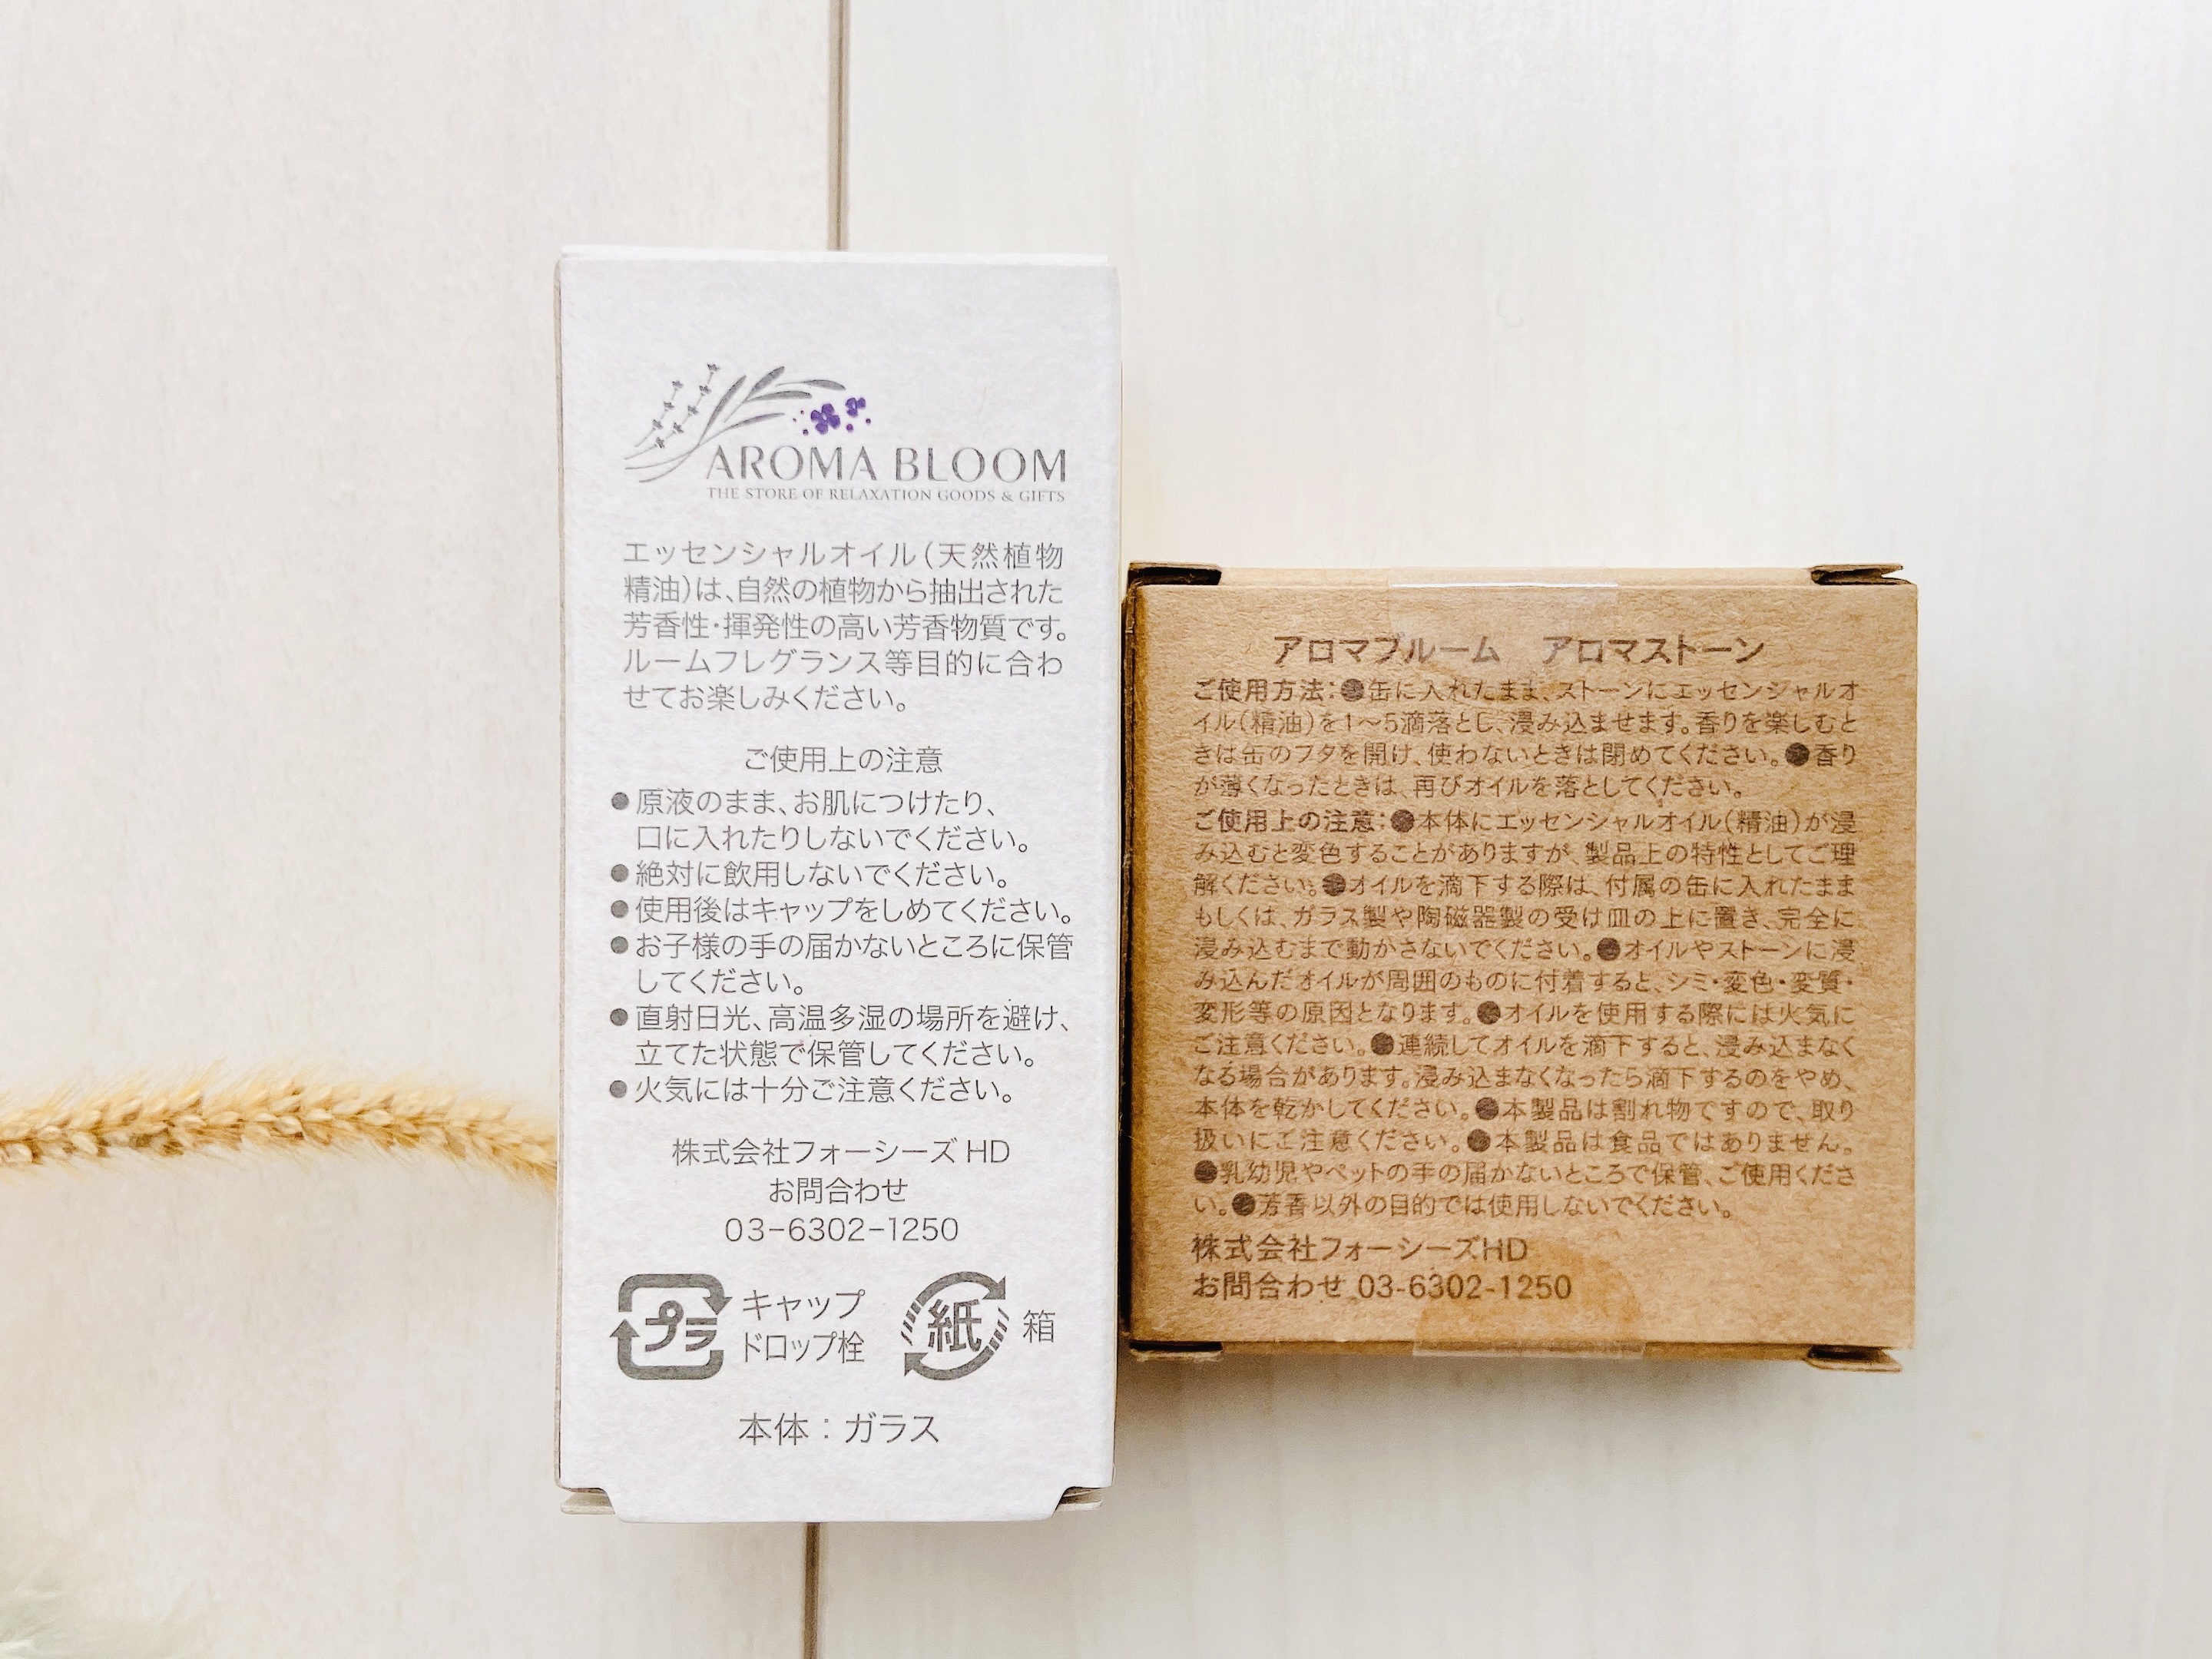 AROMA BLOOM
THE STORE OF RELAXATION GOODS & GIFTS
エッセンシャルオイル(天然植物
精油)は、自然の植物から抽出された
芳香性・揮発性の高い芳香物質です。
ルームフレグランス等目的に合わ
せてお楽しみください。
ご使用上の注意
●原液のまま、お肌につけたり、
口に入れたりしないでください。
●絶対に飲用しないでください。
●使用後はキャップをしめてください。
●お子様の手の届かないところに保管
してください。
●直射日光、高温多湿の場所を避け、
立てた状態で保管してください。
●火気には十分ご注意ください。
株式会社フォーシーズ HD
お問合わせ
03-6302-1250
プラ
キャップ
ドロップ栓
紙
箱
本体:ガラス
アロマブルーム アロマストーン
ご使用方法:●缶に入れたまま、ストーンにエッセンシャルオ
イル(精油)を1〜5滴落とし、浸み込ませます。香りを楽しむと
きは缶のフタを開け、使わないときは閉めてください。●香り
が薄くなったときは、再びオイルを落としてください。
ご使用上の注意:●本体にエッセンシャルオイル(精油)が浸
み込むと変色することがありますが、製品上の特性としてご理
解ください。●オイルを滴下する際は、付属の缶に入れたまま
もしくは、ガラス製や陶磁器製の受け皿の上に置き、完全に
浸み込むまで動かさないでください。●オイルやストーンに浸
み込んだオイルが周囲のものに付着すると、シミ・変色・変質・
変形等の原因となります。●オイルを使用する際には火気に
ご注意ください。●連続してオイルを滴下すると、浸み込まなく
なる場合があります。浸み込まなくなったら滴下するのをやめ、
本体を乾かしてください。●本製品は割れ物ですので、取り
扱いにご注意ください。●本製品は食品ではありません。
●乳幼児やペットの手の届かないところで保管、ご使用くださ
い。●芳香以外の目的では使用しないでください。
株式会社フォーシーズHD
お問合わせ 03-6302-1250